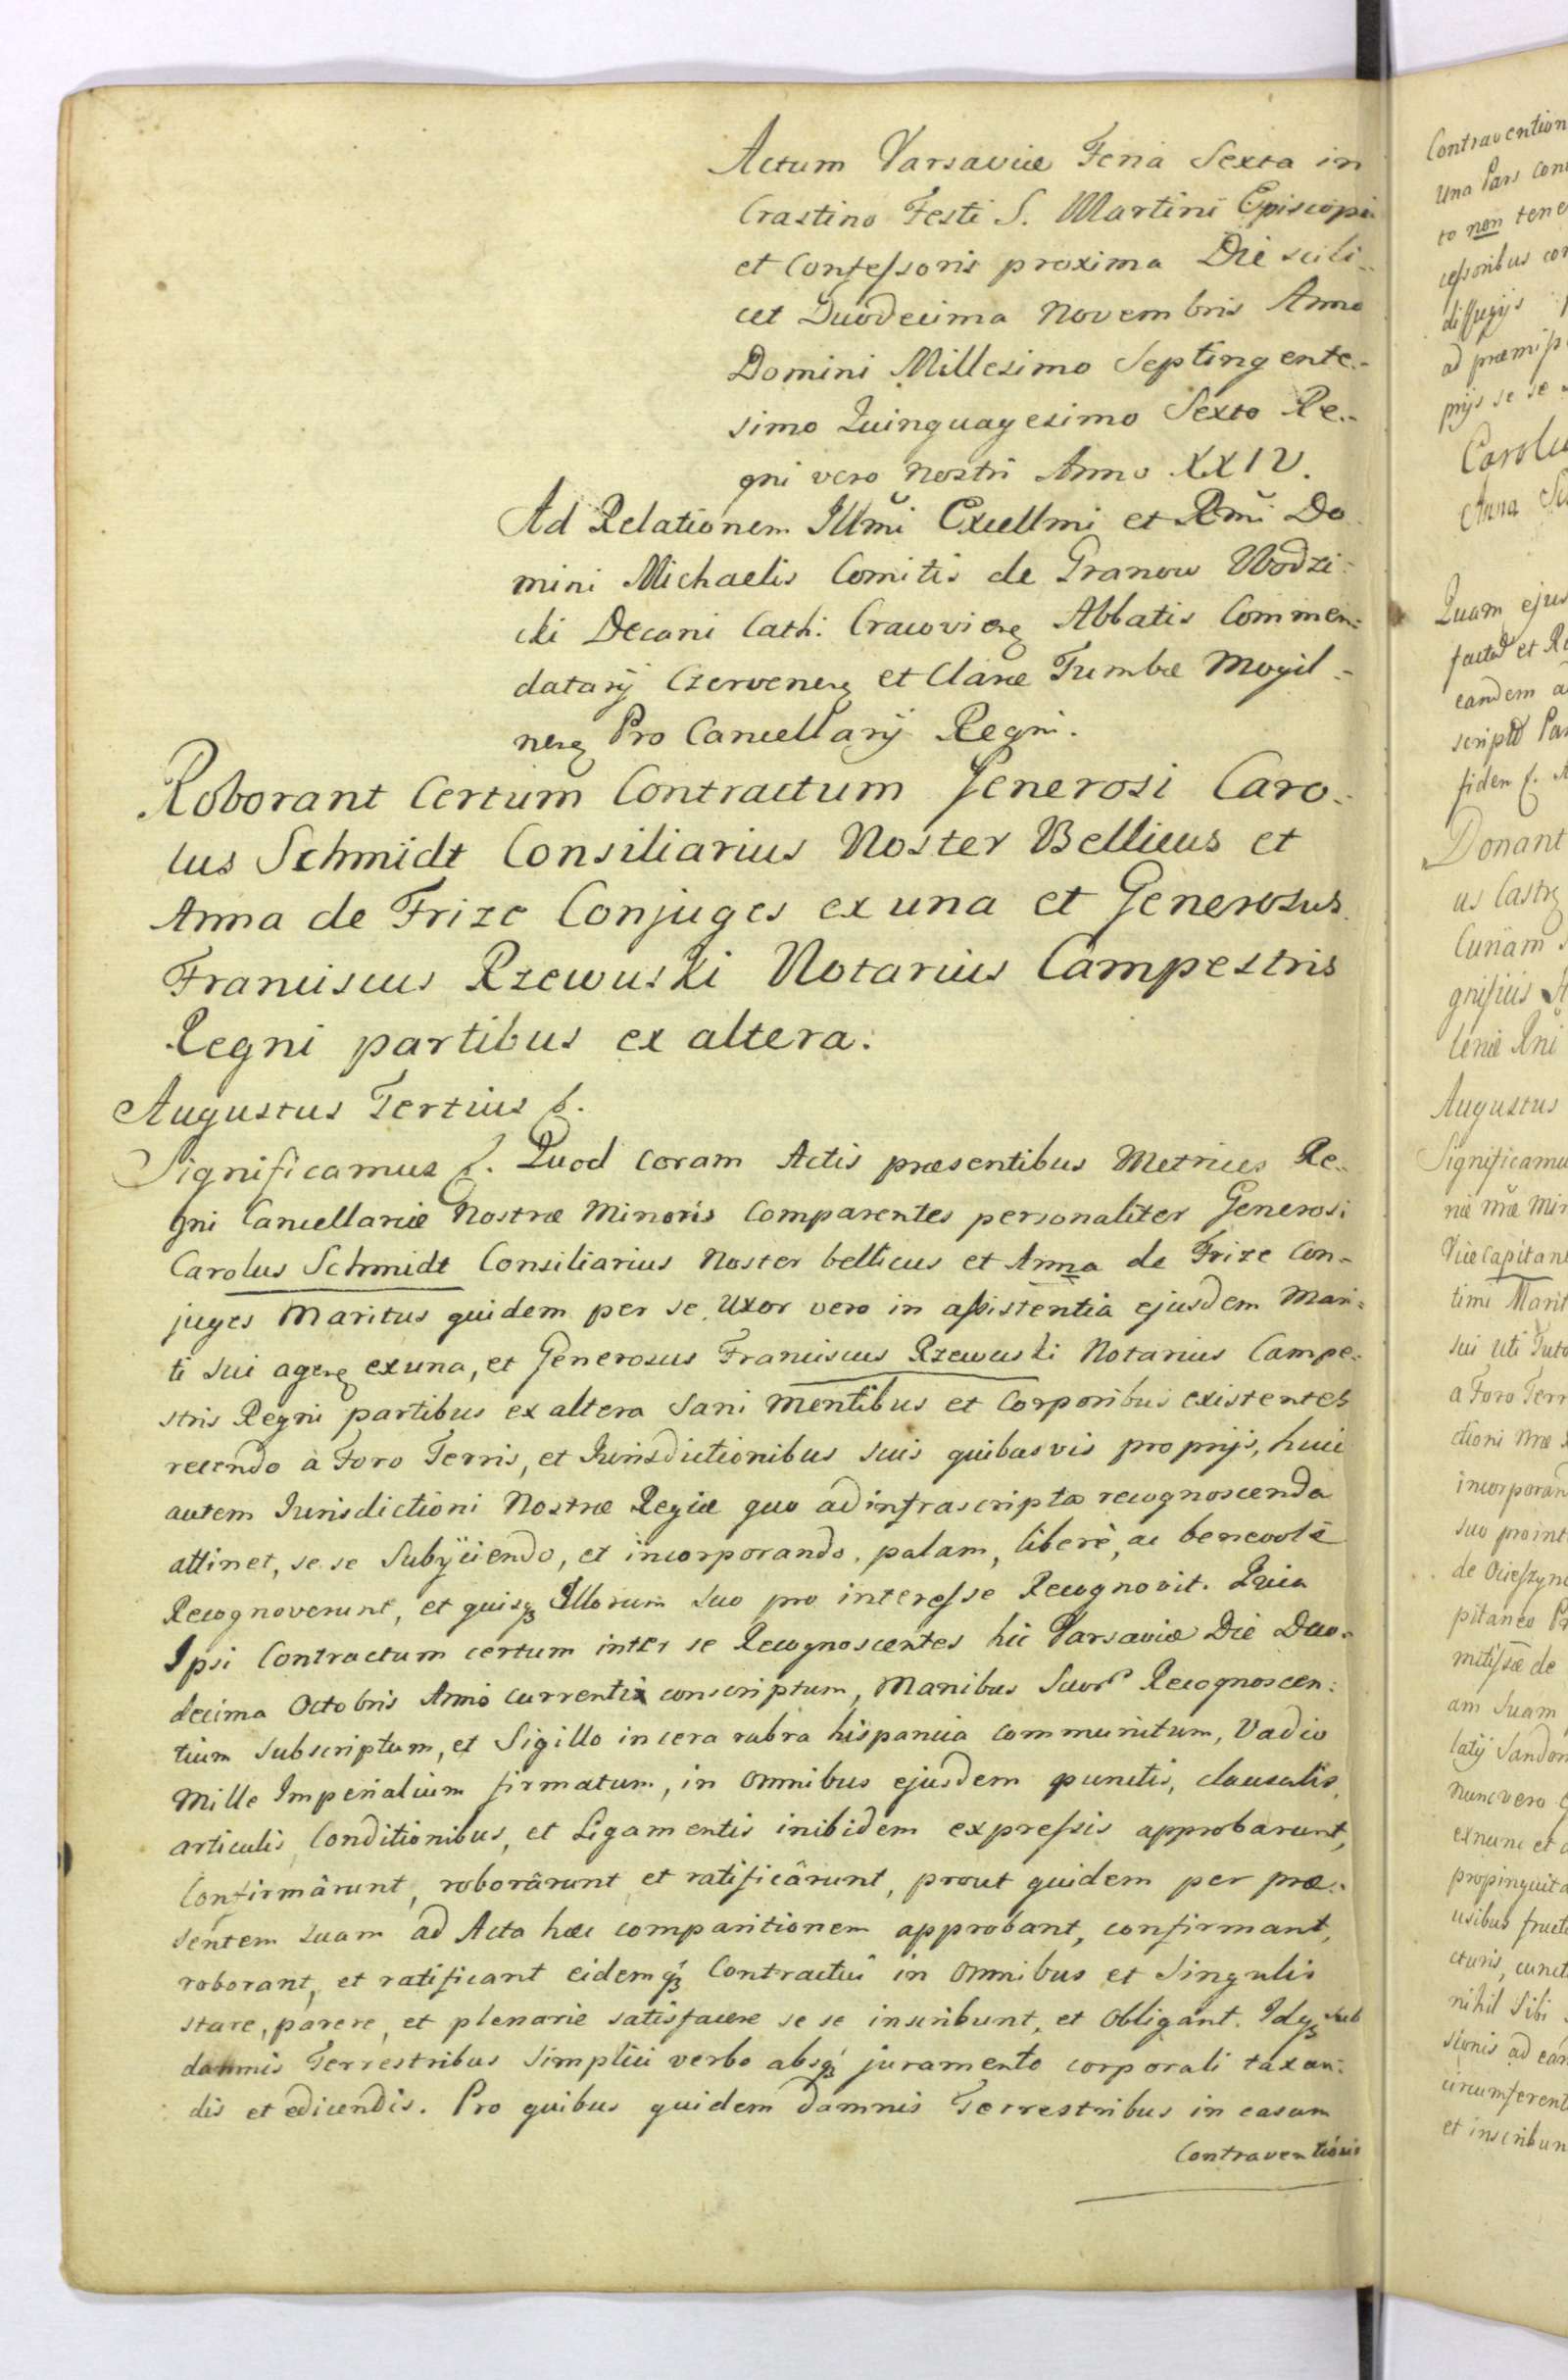 Actum Varsaviæ Feria Sexta in
Crastino Festi S. Martini Episcopi
et Confessoris proxima Die scili-
cet Duodecima Novembris Anno
Domini Millesimo Septingente-
simo Quinquagesimo Sexto Re-
gni vero Nostri Anno XXIV.
Ad Relationem Illmi Excellmi et Rmi Do
mini Michaelis Comitis de Granow Wodzi-
cki Decani Cath: Cracovien Abbatis Commen-
datarij Czervenen et Claræ Tumbæ Mogil-
nen Pro Cancellarij Regni.
Roborant Certum Contractum Generosi Caro-
lus Schmidt Consiliarius Noster Bellicus et
Anna de Frize Conjuges ex una et Generosus
Franciscus Rzewuski Notarius Campestris
Regni partibus ex altera.
Augustus Tertius &.
Significamus &. Quod coram Actis præsentibus Metrices Re-
gni Cancellariæ Nostræ Minoris Comparentes personaliter Generosi
Carolus Schmidt Consiliarius Noster bellicus et Anna de Frize Con-
juges Maritus quidem per se, Uxor vero in assistentia ejusdem Mari-
ti sui agen ex una, et Generosus Franciscus Rzewuski Notarius Campe-
stris Regni partibus ex altera Sani mentibus et Corporibus existentes
recendo à Foro Terris, et Jurisdictionibus suis quibusvis proprijs, huic
autem Jurisdictioni Nostræ Regiæ quo ad infrascripta recognoscenda
attinet, se se Subijciendo, et incorporando, palam, liberè, ac benevolè
Recognoverunt, et quisq Illorum suo pro interesse Recognovit. Quia
Ipsi Contractum certum inter se Recognoscentes hic Varsaviæ Die Duo-
decima Octobris Anno currentis conscriptum, Manibus Suor Recognoscen-
tium subscriptum, et Sigillo in cera rubra hispanica communitum, Vadio
Mille Imperialium firmatum, in omnibus ejusdem punctis, clausulis,
articulis, Conditionibus, et Ligamentis inibidem expressis approbarunt,
Confirmârunt, roborârunt et ratificârunt, prout quidem per præ-
sentem suam ad Acta hæc comparitionem approbant, confirmant,
roborant, et ratificant eidemq Contractui in Omnibus et Singulis
stare, parere, et plenarie satisfacere se se inscribunt, et Obligant. Idq sub
damnis Terrestribus Simplici verbo absq juramento corporali taxan-
dis et edicendis. Pro quibus quidem damnis Terrestribus in casum
Contraventionis
Contravention
una Pars
to non tene
ad
Carolu
Anna
Quam ejus
factâ et
eandem
Donant
us Castr
Curiam
Augustus
Significamu
Vice Capitane
timi Marit
sui uti Tuto
a Foro Terr
ctioni Nræ
incorporan
suo pro int
de
pitaneo
de
am suam
latij Sandom
Nunc vero
ex nunc et
propinquita
usibus fruct
cturis, cunct
nihil sibi
sionis ad ean
circumferent
et inscribun